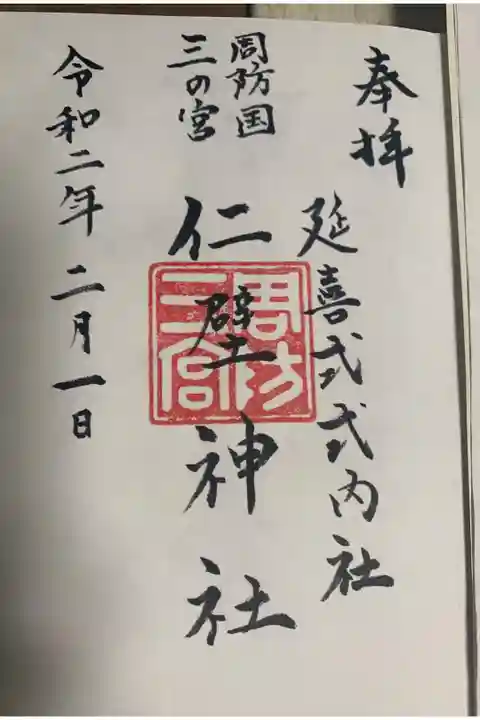 奉拝
延喜式式内社
周防国
三の宮
仁壁神社
周防
三宮
令和二年二月一日